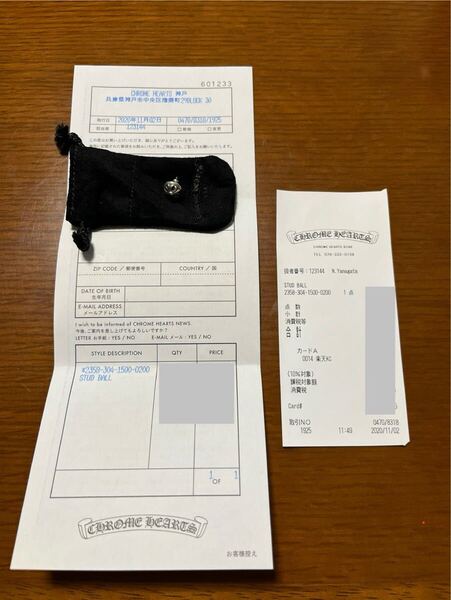 601233
CHROME HEARTS 神戸
兵庫県神戸市中央区播磨町29BLOCK 30
発行日 2020年11月02日 0470/8318/1925
担当者 123144
ZIP CODE / 郵便番号 COUNTRY / 国
DATE OF BIRTH
生年月日
E-MAIL ADDRESS
メールアドレス
I wish to be informed of CHROME HEARTS NEWS.
今後、ご案内を差し上げてもよろしいですか?
LETTER お手紙 : YES / NO E-MAIL メール : YES / NO
STYLE DESCRIPTION QTY PRICE
*2358-304-1500-0200
STUD BALL
1 OF 1
CHROME HEARTS
お客様控え
CHROME HEARTS
CHROME HEARTS KOBE
扱者番号:123144 N.Yanagata
STUD BALL
2358-304-1500-0200 1 点
点 数
小 計
消費税等
合 計
カードA
0014 楽天KC
(10%対象)
課税対象額
消費税
Card#
取引NO 0470/8318
1925 11:49 2020/11/02